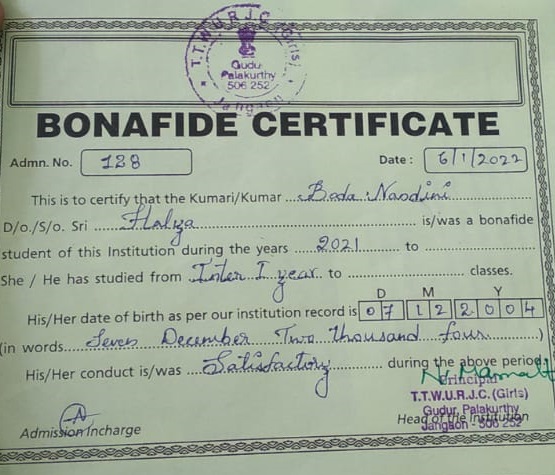 T.T.W.U.R.J.C. (Girls)
Gudur
Palakurthy
506 252
Jangaon
BONAFIDE CERTIFICATE
Admn. No. 128 Date : 6/1/2022
This is to certify that the Kumari/Kumar ... Boda Nandini
D/o./S/o. Sri ... is/was a bonafide
student of this Institution during the years 2021 to
She / He has studied from Inter I year to ... classes.
D M Y
His/Her date of birth as per our institution record is 07 12 2004
(in words... Seven December Two thousand four ...)
His/Her conduct is/was ... Satisfactory ... during the above period.
Principal
T.T.W.U.R.J.C. (Girls)
Gudur, Palakurthy
Admission Incharge Head of the Institution
Jangaon - 506 252